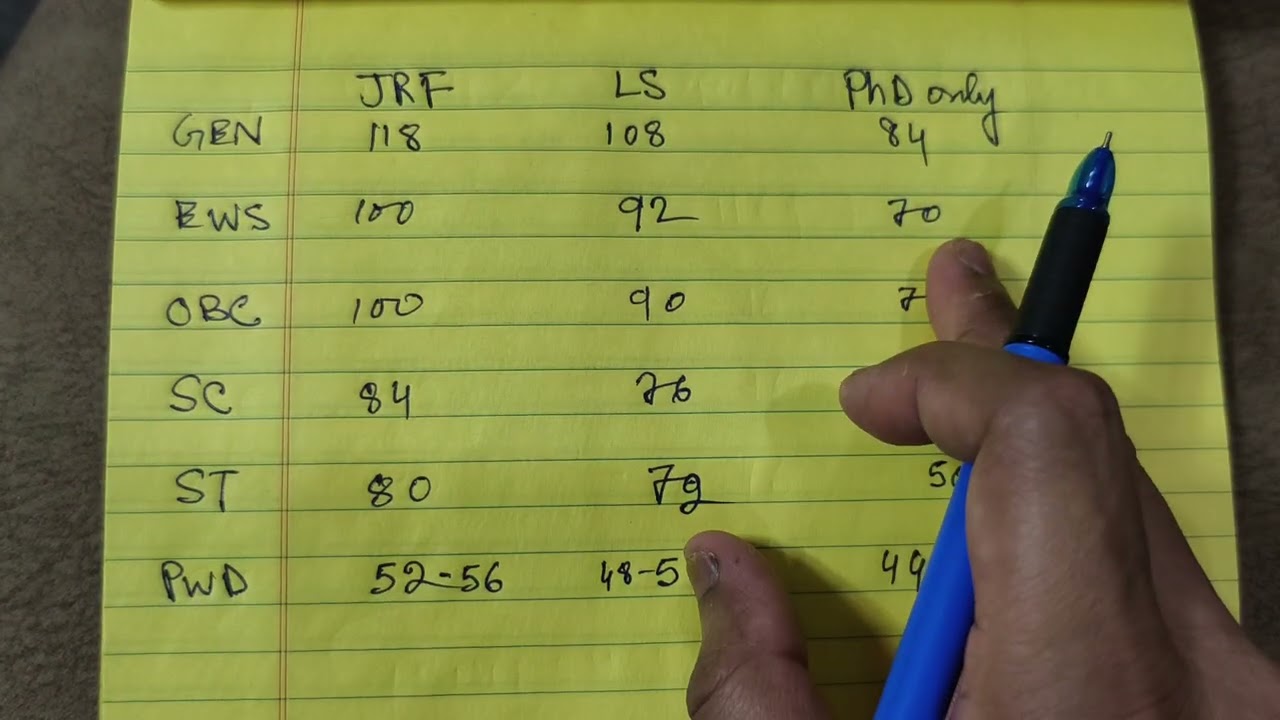 JRF LS PhD only
GEN 118 108 84
EWS 100 92 70
OBC 100 90
SC 84 76
ST 80
PWD 52-56